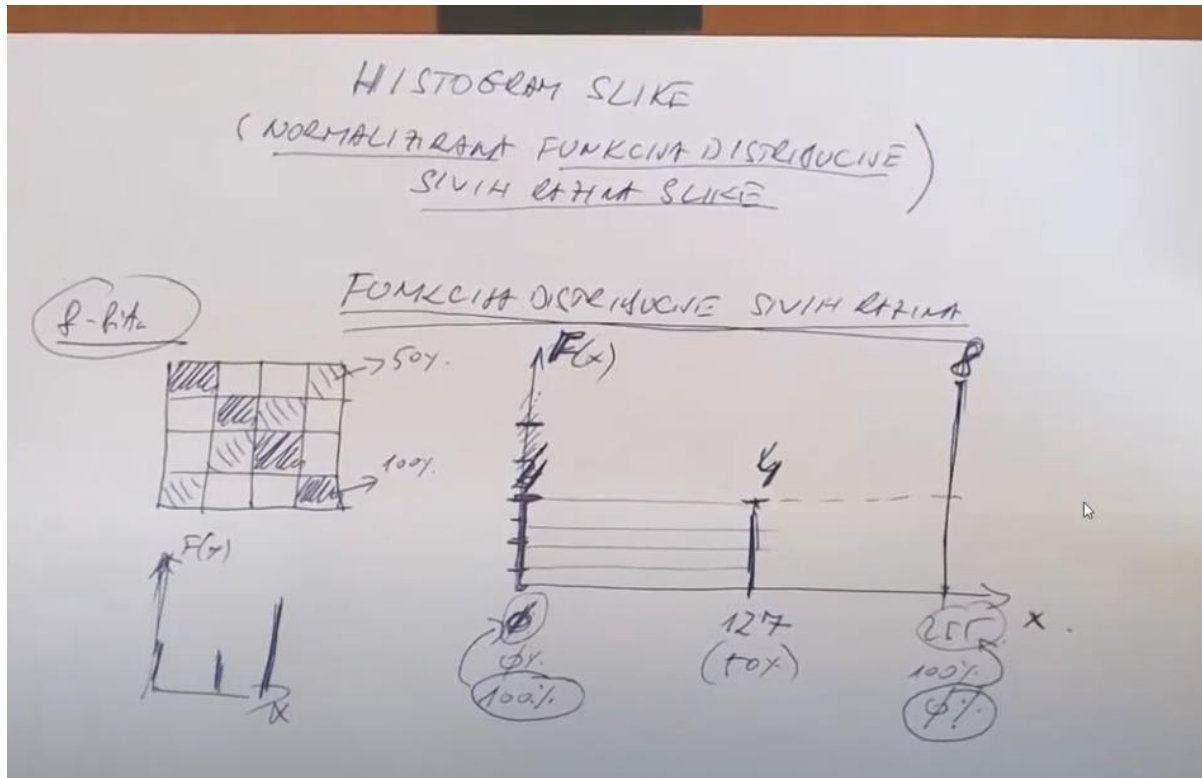 HISTOGRAM SLIKE
(NORMALIZIRANA FUNKCIJA DISTRIBUCIJE
SIVIH RAZINA SLIKE)
FUNKCIJA DISTRIBUCIJE SIVIH RAZINA
8-bita
50%
100%
F(x)
x
F(x)
4
4
8
0
0%
100%
127
(50%)
255
100%
0%
x